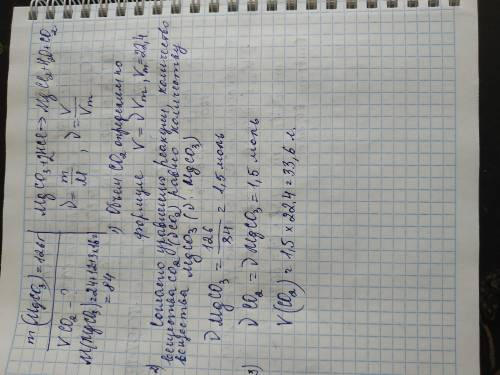 m(MgCO₃)=126г
V CO₂ - ?
M(MgCO₃)=24+12+3×16=
= 84
MgCO₃+2HCl=>MgCl₂+H₂O+CO₂
ν = m/M , ν = V/Vm
1) Объем CO₂ определяем по
формуле V = ν Vm, Vm=22,4
2) Согласно уравнению реакции, количество
вещества CO₂ (νCO₂) равно количеству
вещества MgCO₃ (ν MgCO₃)
ν MgCO₃ = 126/84 = 1,5 моль
ν CO₂ = ν MgCO₃ = 1,5 моль
3) V(CO₂) = 1,5 × 22.4 = 33,6 л.